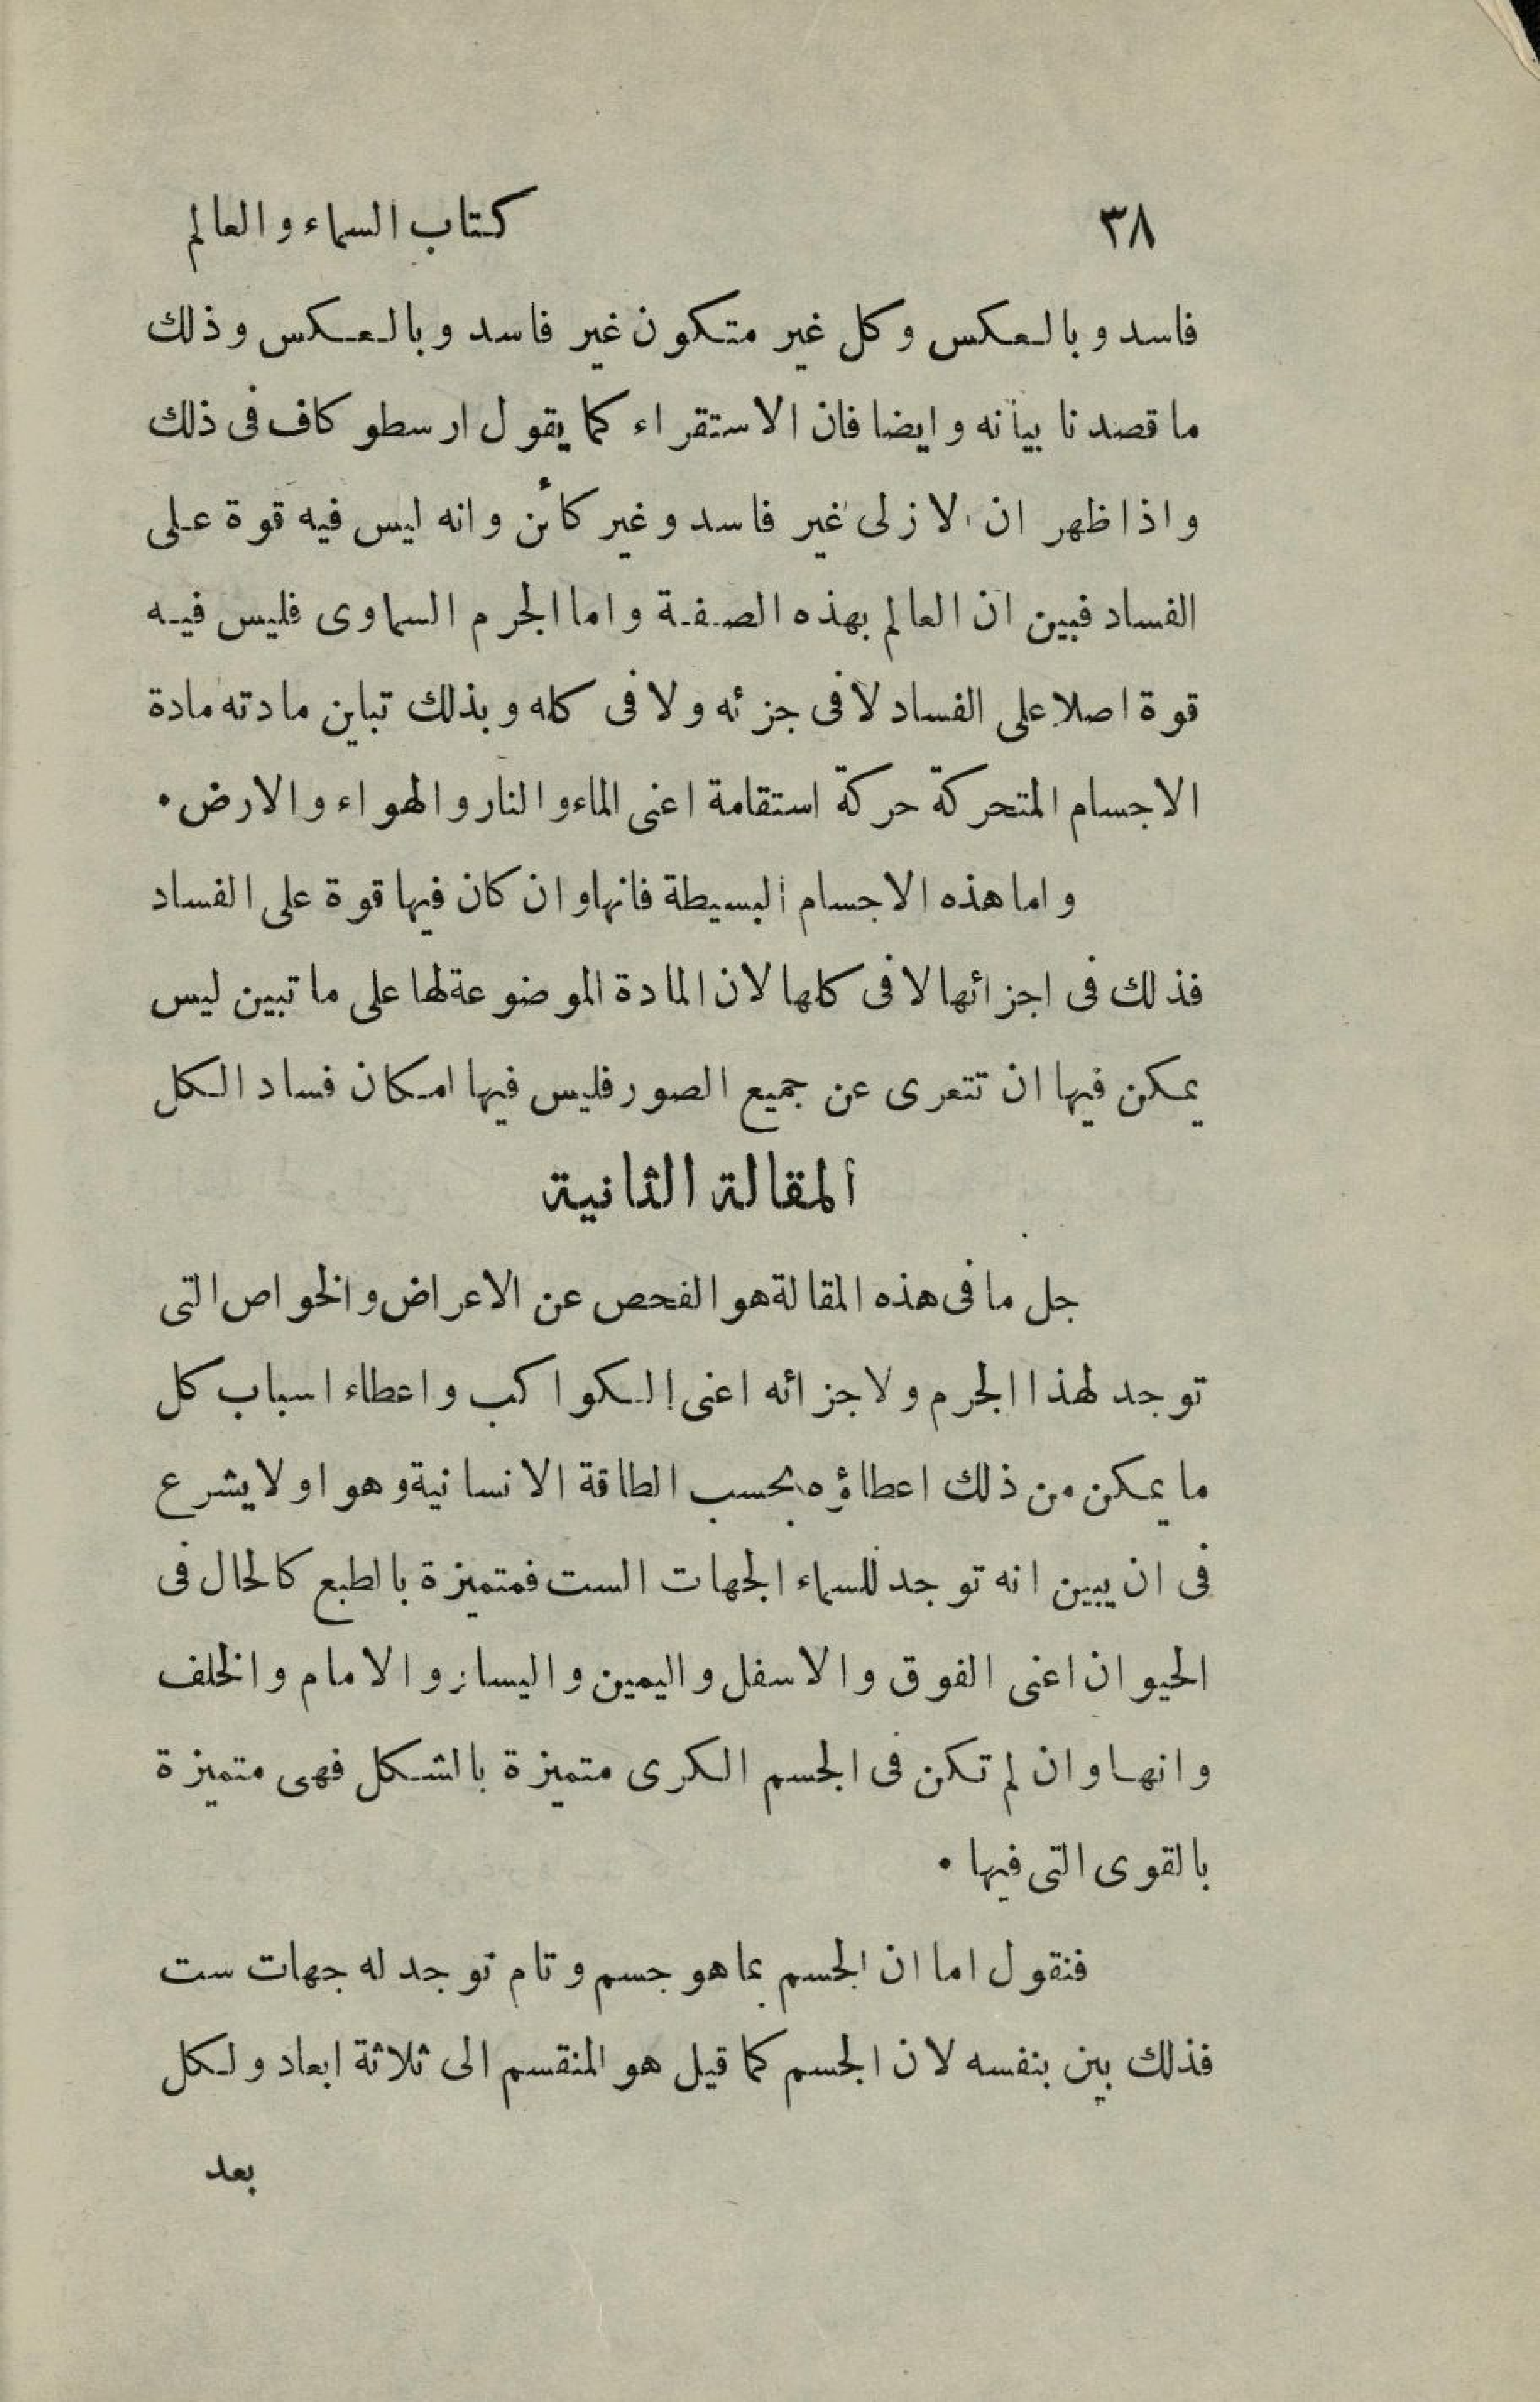 ٣٨ كتاب السماء والعالم
فاسد وبالعكس وكل غير متكون غير فاسد وبالعكس وذلك
ما قصدنا بيانه وايضا فان الاستقراء كما يقول ارسطو كاف فى ذلك
واذا ظهر ان الازلى غير فاسد وغير كائن وانه ليس فيه قوة على
الفساد فبين ان العالم بهذه الصفة واما الجرم السماوى فليس فيه
قوة اصلا على الفساد لا فى جزئه ولا فى كله وبذلك تباين مادته مادة
الاجسام المتحركة حركة استقامة اعنى الماء والنار والهواء والارض ٠
واما هذه الاجسام البسيطة فانها وان كان فيها قوة على الفساد
فذلك فى اجزائها لا فى كلها لان المادة الموضوعة لها على ما تبين ليس
يمكن فيها ان تتعرى عن جميع الصور فليس فيها امكان فساد الكل
المقالة الثانية
جل ما فى هذه المقالة هو الفحص عن الاعراض والخواص التى
توجد لهذا الجرم ولاجزائه اعنى الكواكب واعطاء اسباب كل
ما يمكن من ذلك اعطاؤه بحسب الطاقة الانسانية وهو اولا يشرع
فى ان يبين انه توجد للسماء الجهات الست فمتميزة بالطبع كالحال فى
الحيوان اعنى الفوق والاسفل واليمين واليسار والامام والخلف
وانها وان لم تكن فى الجسم الكرى متميزة بالشكل فهى متميزة
بالقوى التى فيها ٠
فنقول اما ان الجسم بما هو جسم وتام توجد له جهات ست
فذلك بين بنفسه لان الجسم كما قيل هو المنقسم الى ثلاثة ابعاد ولكل
بعد